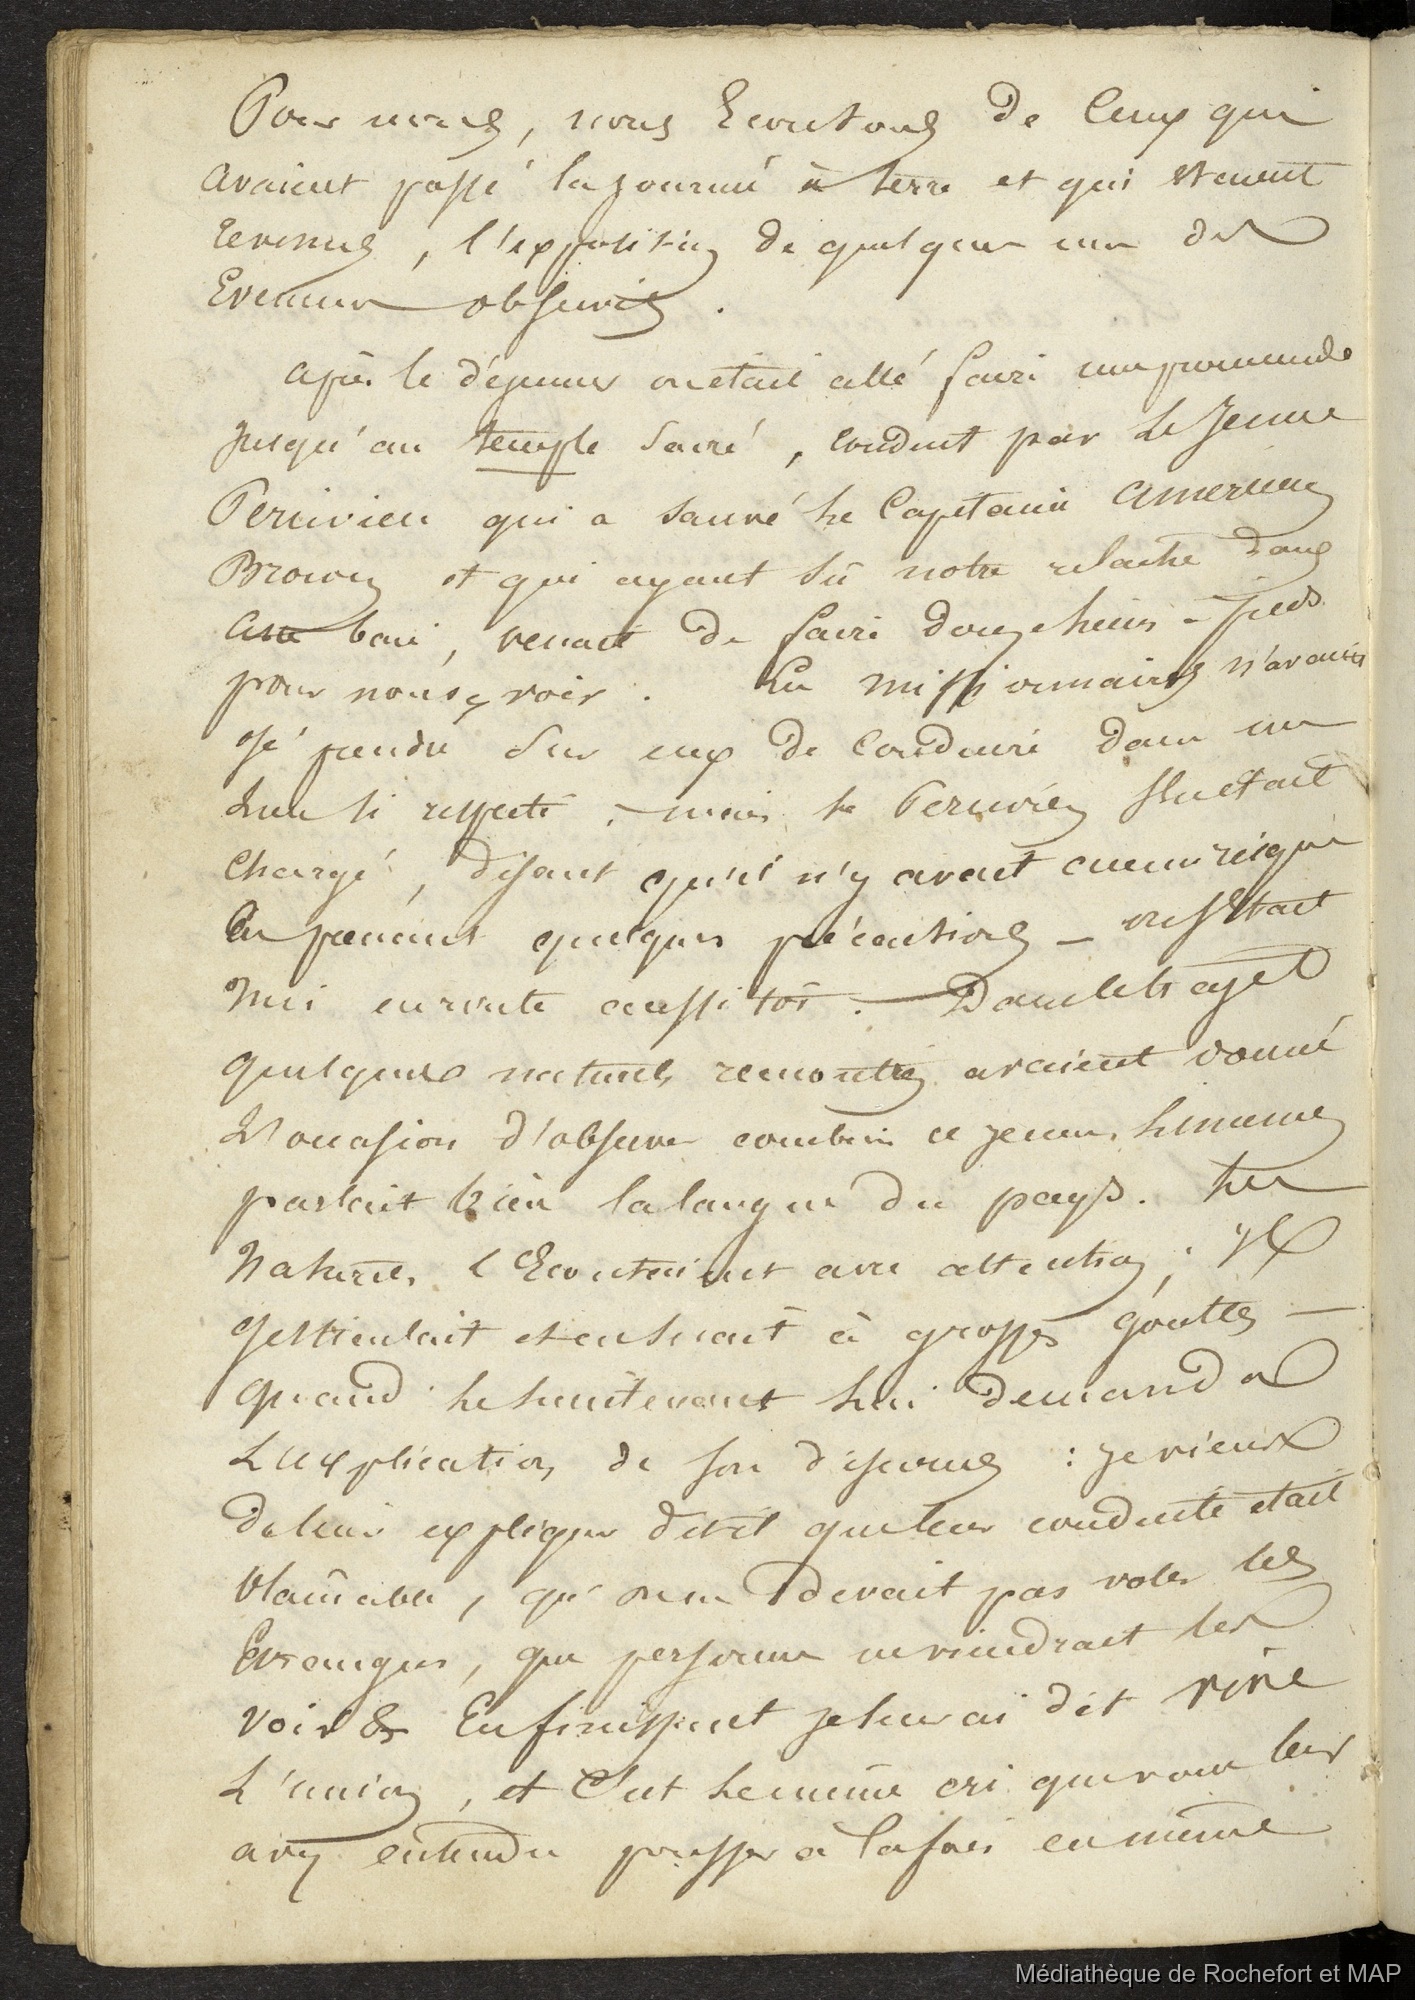 Pour nous, nous Ecoutons de Ceux qui
avaient passé la journée à terre et qui étaient
revenus, l'exposition de quelques uns des
Evenemens observés.
après le déjeuner on était allé faire une promenade
jusqu'au temple Sacré, conduit par le Jeune
Peruvien qui a sauvé le Capitaine americain
Brown et qui ayant Su notre relache dans
cette baie, venait de faire douze lieues à pieds
pour nous y voir. Les missionnaires n'avaient
osé prendre Sur eux de Conduire dans un
Lieu si respecté, mais le Peruvien s'en était
Chargé, disant qu'il n'y avait aucun risque
En prenant quelques précautions _ on s'Etait
mis en route aussitôt. — Dans le trajet
quelques naturels rencontrés avaient donné
L'occasion d'observer combien ce jeune homme
parlait bien la langue du pays. Les
Naturels l'Ecoutaient avec attention, il
gesticulait et en suait à grosses goutes —
quand le lieutenant lui demanda
L'explication de son discours : je viens
de leur expliquer dit-il que leur conduite etait
blamable, qu'on ne devait pas voler les
Etrangers, que personne ne viendrait les
voir & En finissant je leur ai dit vive
L'union, et C'est le même cri que vous leur
avez entendu pousser à la fois en même